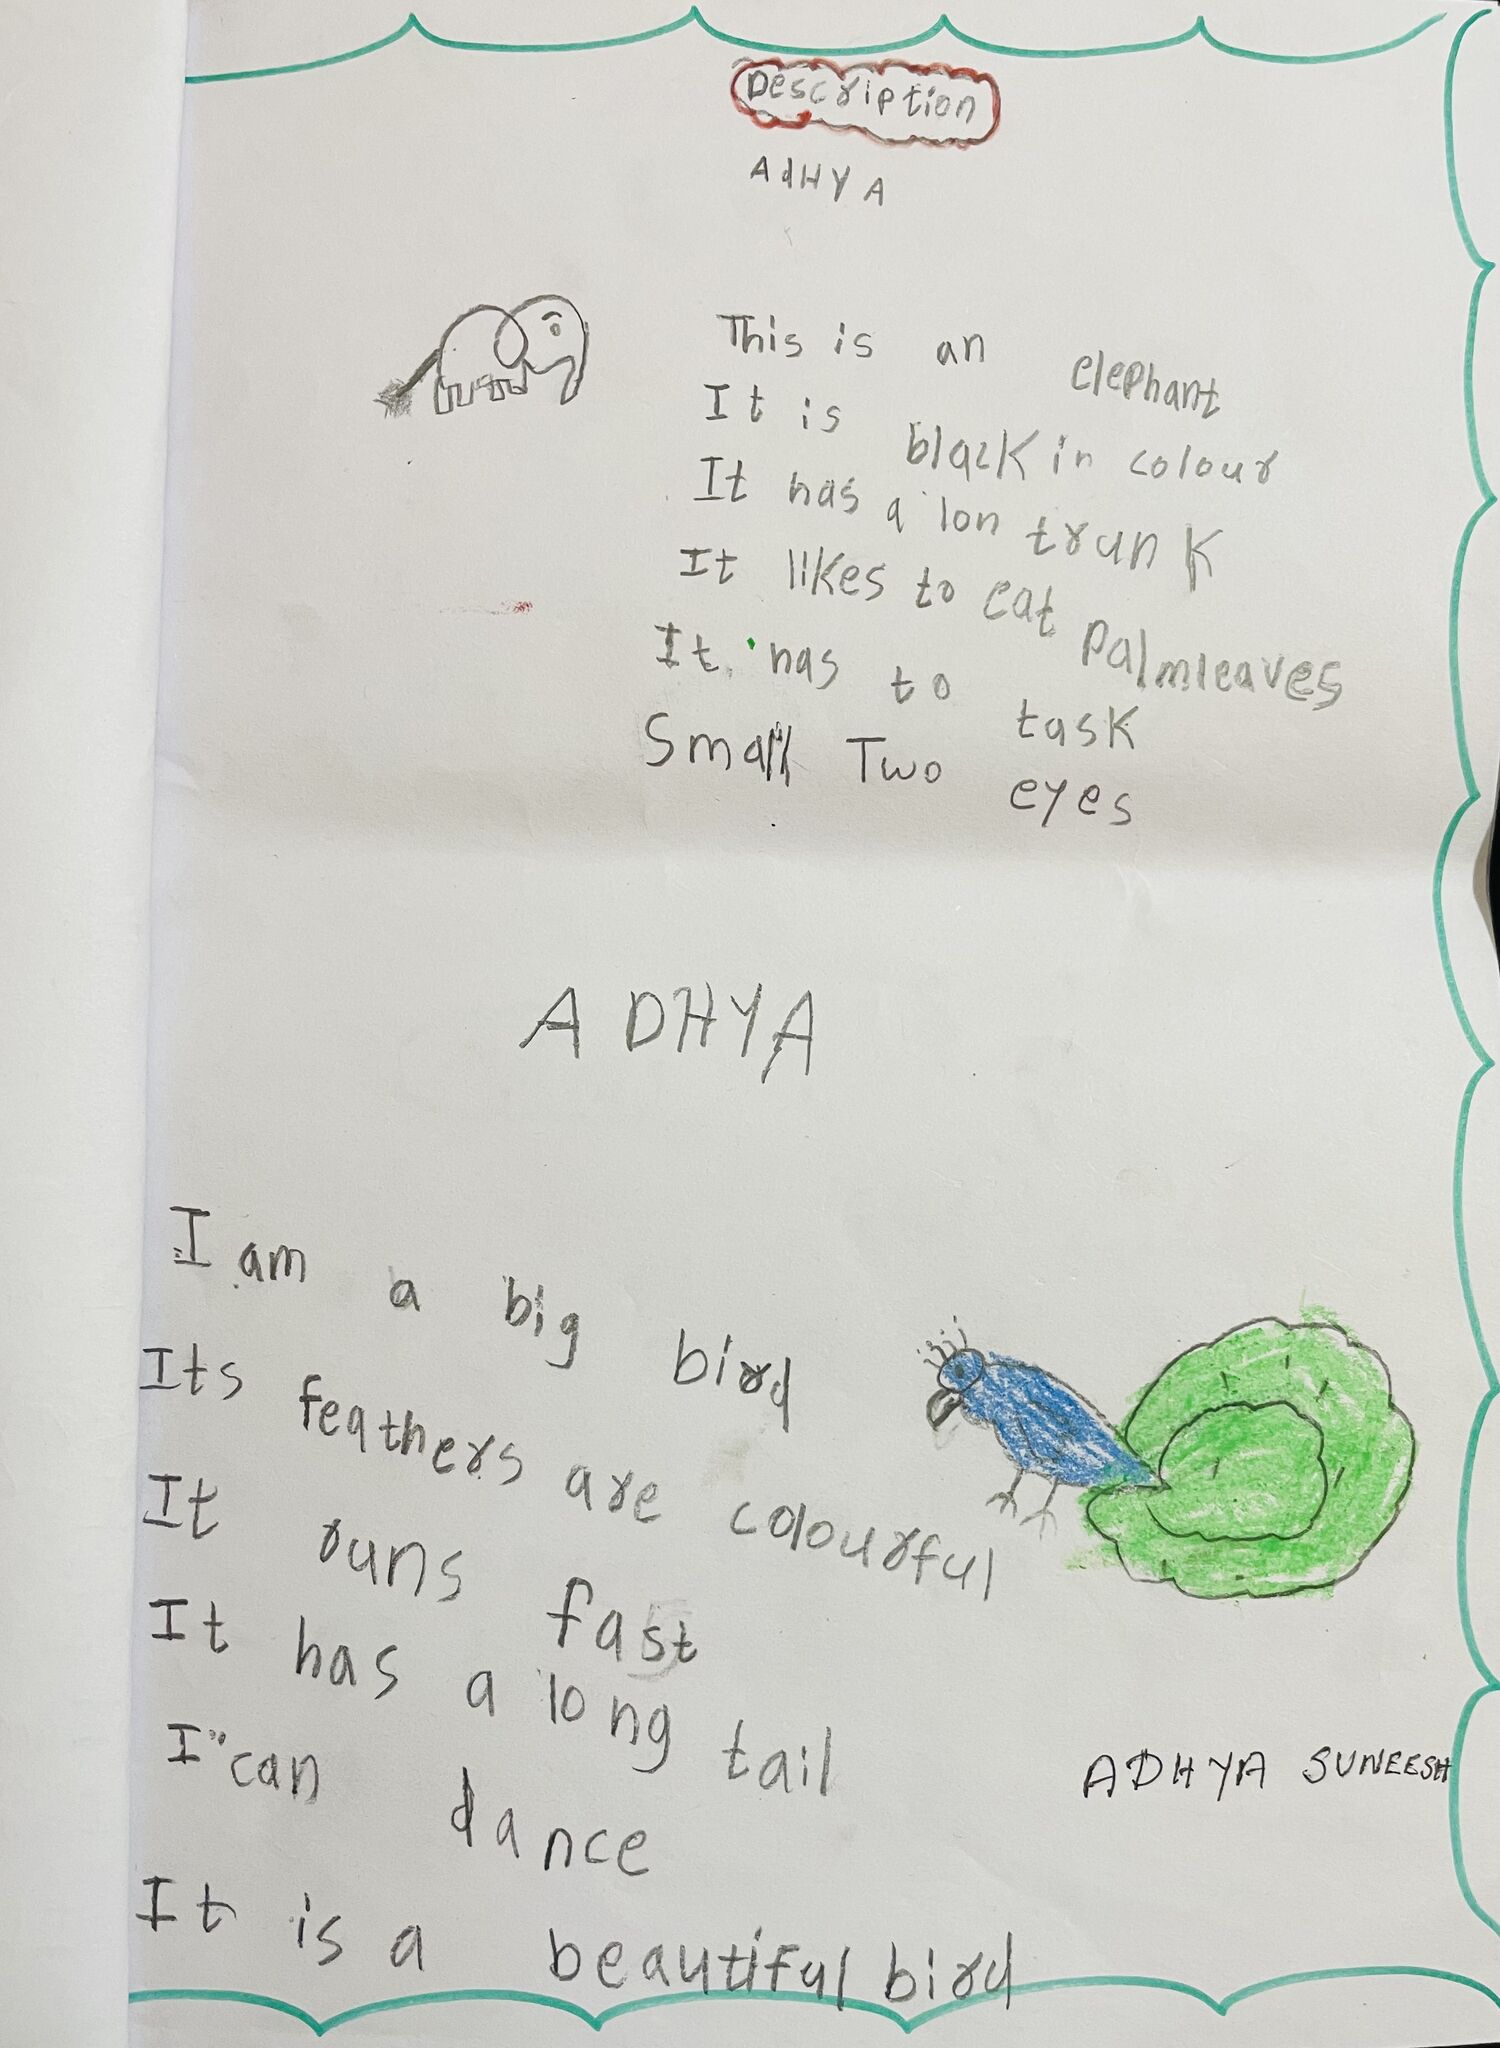 Description
AdHYA
This is an elephant
It is black in colour
It has a lon trunk
It likes to eat Palmleaves
It has to task
Small Two eyes
ADHYA
I am a big bird
Its feathers are colourful
It runs fast
It has a long tail
I can dance
It is a beautiful bird
ADHYA SUNEESH